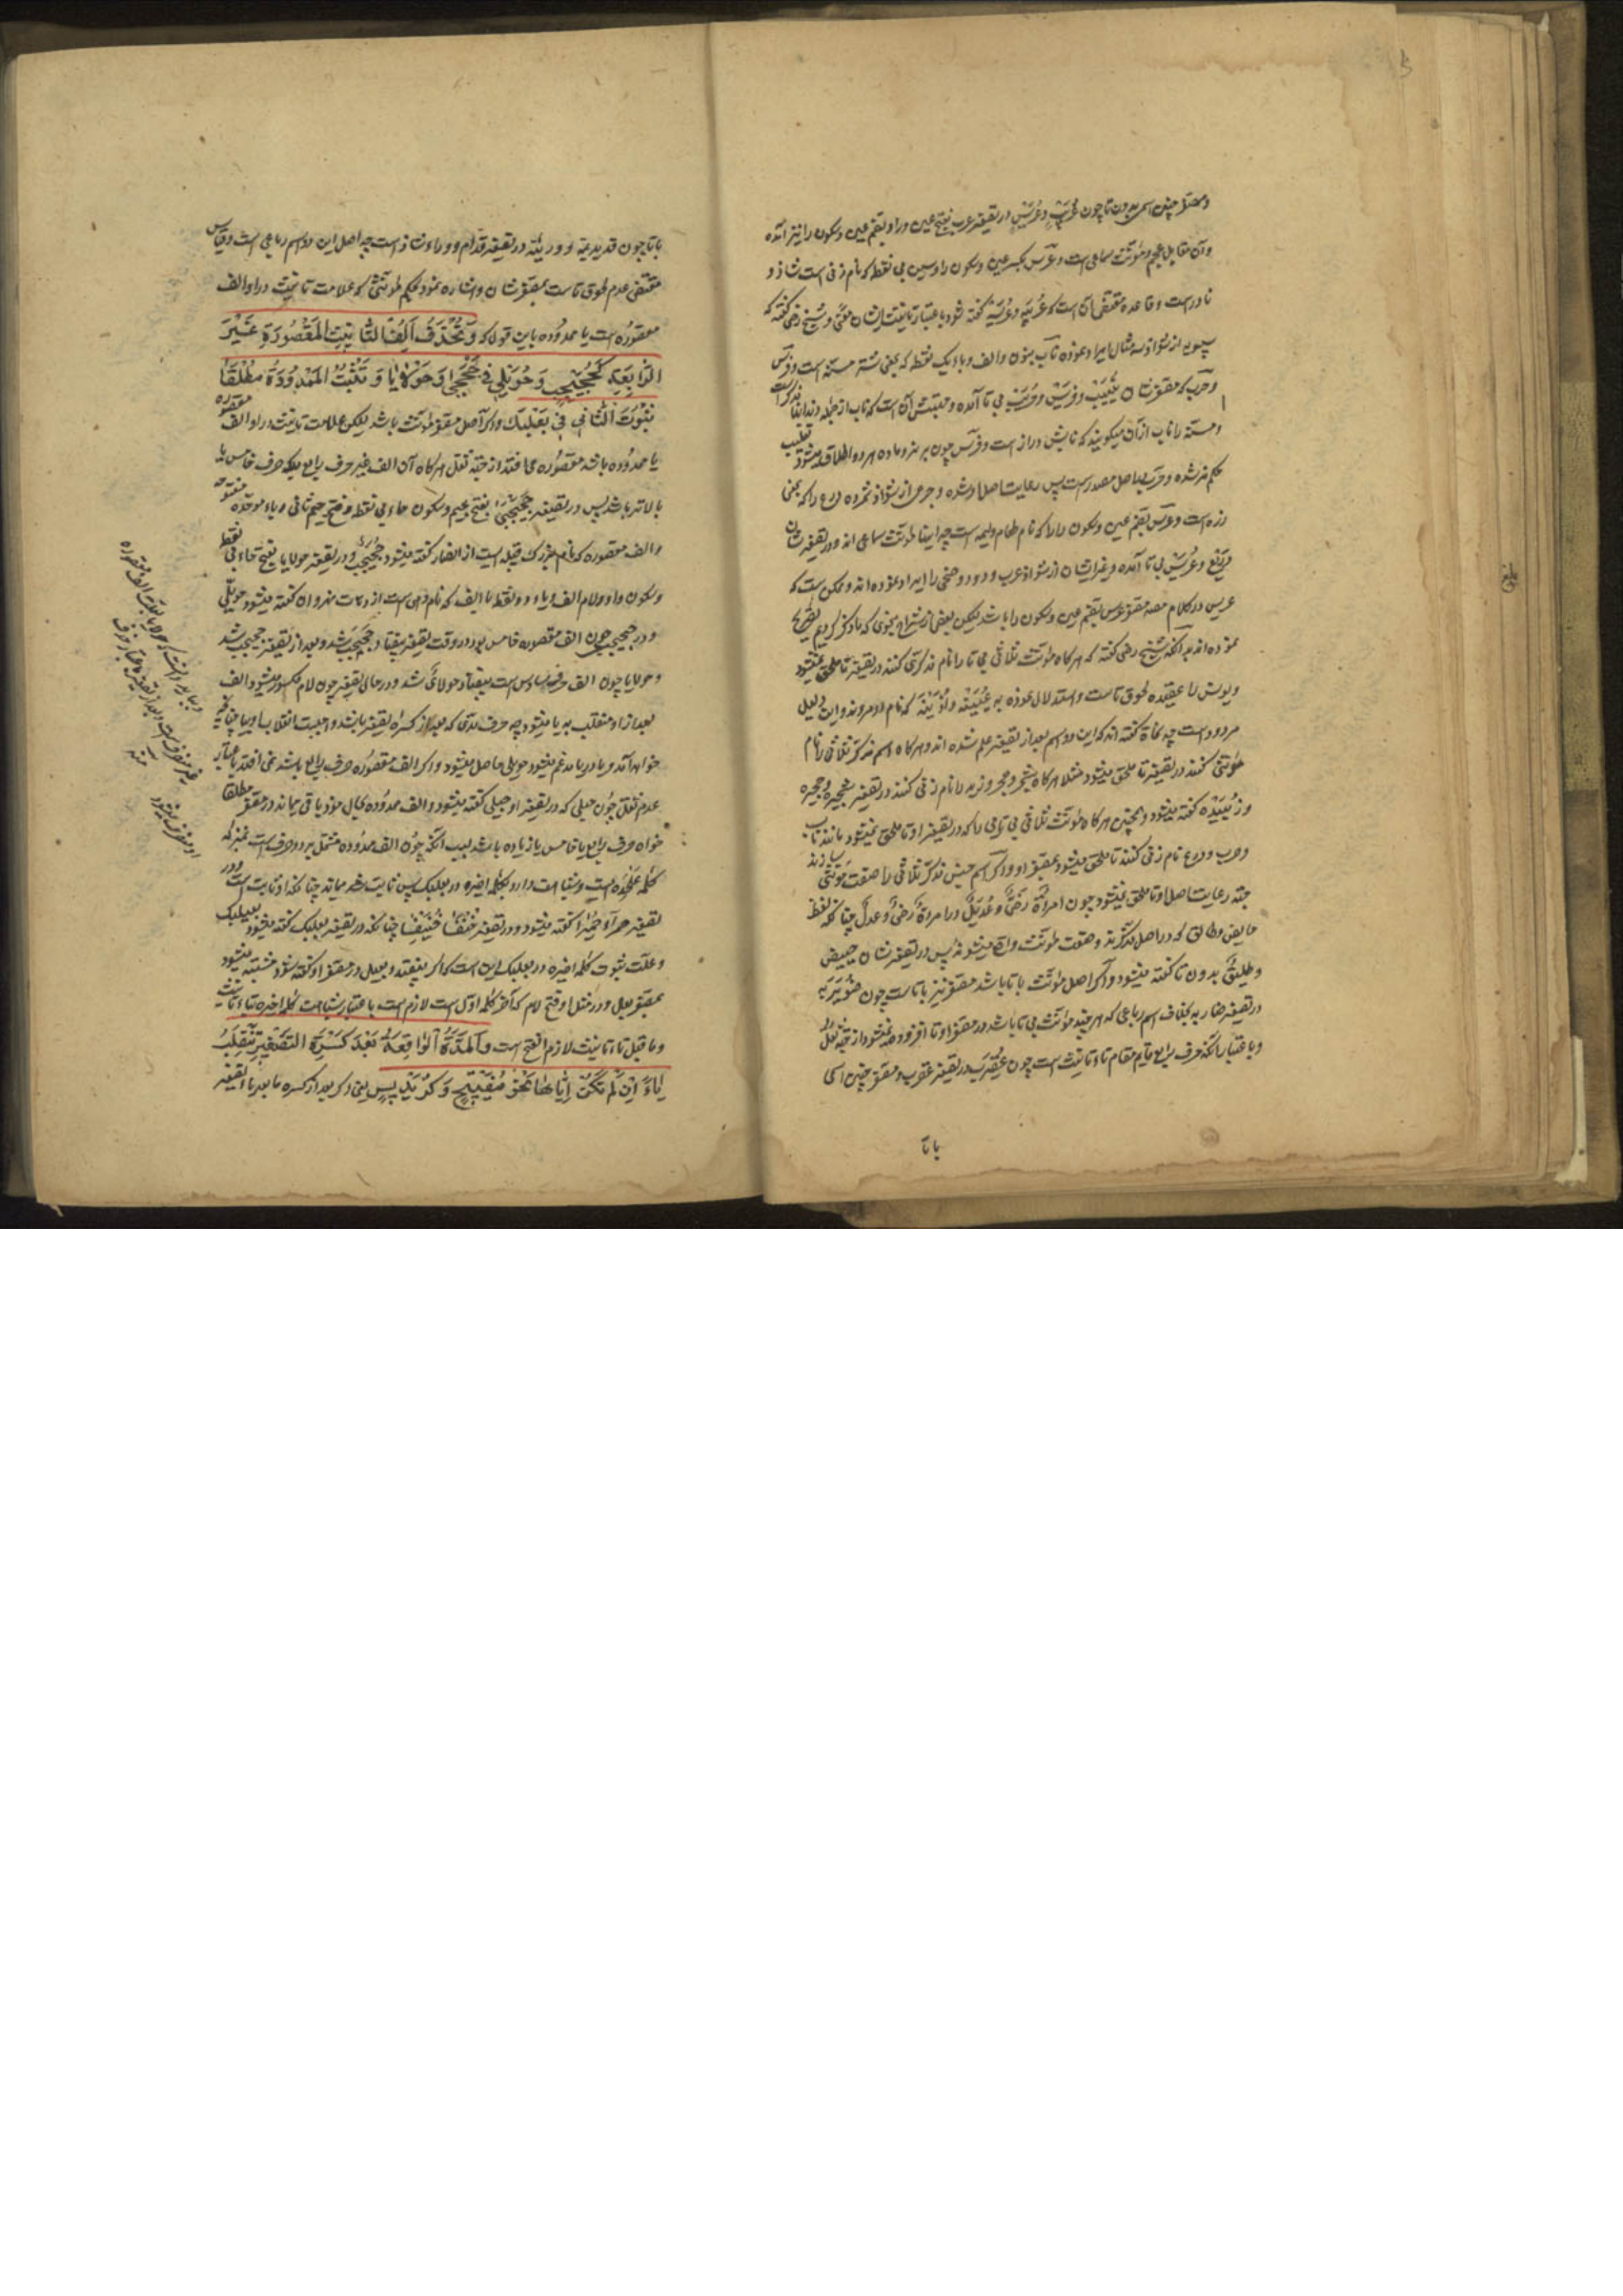 ومصغر چنین اسمی بدون تا چون عُرَیْب و عُرَیْس در تصغیر عرب بفتح عین و را و بضم عین و سکون را نیز آمده
و آن مقابل عجم و مؤنث سماعی است و عرس بکسر عین و سکون را و سین بی نقطه که نام زنی است شاذ و
نادرست و قاعده مقتضی آن است که عُرَیْبَة و عُرَیْسَة گفته شود باعتبار تانیث ایشان معنی و شیخ رضی گفته که
سیبویه از شواذ سه مثال ایراد نموده ناب بنون و الف و باء یک نقطه که بمعنی شتر مسنّه است و فرس
و حرب که مصغرشان نُیَیْب و فُرَیْس و حُرَیْب بی تا آمده
و مسنّه را ناب از آن میگویند که نابش دراز است و فرس چون بر نر و ماده هر دو اطلاق میشود تغلیب
حکم مذکر شده و حرب در اصل مصدر است پس رعایت اصل او شده و جرمی از شواذ شمرده درع را که بمعنی
زره است و عرس بضم عین و سکون را را که نام طعام ولیمه است چه اینها مؤنث سماعی اند و در تصغیرشان
دُرَیْع و عُرَیْس بی تا آمده و غیر ایشان از شواذ عرب و ذود و ضحی را ایراد نموده اند و ممکن است که
عریس در کلام مصنف مصغر عرس بضم عین و سکون را باشد لیکن بعضی از شراح بنحوی که ما ذکر کردیم تصریح
نموده اند بدانکه شیخ رضی گفته که هر گاه مؤنث ثلاثی بی تا را نام مذکری کنند در تصغیر تا ملحق نمیشود
و یونس را عقیده لحوق تاست و استدلال نموده به عُیَیْنَة و اُذَیْنَة که نام دو مردند و این دلیل
مردود است چه نحاة گفته اند که این دو اسم بعد از تصغیر علم شده اند و هر گاه اسم مذکر ثلاثی را نام
مؤنثی کنند در تصغیر تا ملحق میشود مثلا هر گاه شجر و حجر و زید را نام زنی کنند در تصغیر شجیره و حجیره
و زُیَیْدَه گفته میشود و همچنین هر گاه مؤنث ثلاثی بی تایی را که در تصغیر او تا ملحق نمیشود مانند ناب
و حرب و درع نام زنی کنند تا ملحق میشود بمصغر او و اگر اسم جنس مذکر ثلاثی را صفت مؤنثی سازند
جهة رعایت اصل او تا ملحق نمیشود چون امرأة رُضَیّ و عُدَیْل در امرأة رضیً و عدل چنانکه لفظ
حایض و طالق که در اصل مذکرند و صفت مؤنث واقع میشوند پس در تصغیرشان حییض
و طلیق بدون تا گفته میشود و اگر اصل مؤنث با تا باشد مصغر نیز با تاست چون ضُوَیْرِبَة
در تصغیر ضاربه بخلاف اسم رباعی که هر چند مؤنث بی تا باشد در مصغر او تا افزوده نمیشود از جهة ثقل
و باعتبار آنکه حرف رابع قایم مقام تاء تانیث است چون عُقَیْرِب در تصغیر عقرب و مصغر چنین اسمی
با تا
با تا چون قدیدیمة و وریئة در تصغیر قدّام و وراء شاذ است چه اصل این دو اسم رباعی است و قیاس
مقتضی عدم لحوق تاست بمصغرشان و اشاره نمود بحکم مؤنثی که علامت تانیث در او الف
مقصوره است یا ممدوده باین قول که وَ تُحْذَفُ اَلِفُ التَّانِیْثِ المَقْصُوْرَةِ غَیْرَ
الرَّابِعَةِ کَجُحَیْجِبٍ وَ حُوَیْلِیّ فی جَحْجَبیٰ وَ حَوْلَایَا وَ تَثْبُتُ المَمْدُوْدَةُ مُطْلَقًا
ثُبُوْتَ الثَّانِی فی بَعْلَبَکَّ و اگر اصل مصغر مؤنث باشد لیکن علامت تانیث در او الف مقصوره
یا ممدوده باشد مقصوره می افتد از جهة ثقل هر گاه آن الف غیر حرف رابع بلکه حرف خامس یا
بالاتر باشد پس در تصغیر جَحْجَبیٰ بفتح جیم و سکون حاء بی نقطه و فتح جیم ثانی و باء موحده مفتوحه
و الف مقصوره که نام بزرگ قبیله است از انصار گفته میشود جُحَیْجِب و در تصغیر حولایا بفتح حاء بی نقطه
و سکون واو و لام الف و یاء دو نقطه با الف که نام دهی است از دهات نهروان گفته میشود حویلیّ
و در جحیجب چون الف مقصوره خامس بود در وقت تصغیر بیفتاد جحجب شد و بعد از تصغیر جحیجب شد
و حولایا چون الف حرف سادس است بیفتاد حولای شد و در حال تصغیر چون لام مکسور میشود الف
بعد از او منقلب به یا میشود چه حرف مدی که بعد از کسره تصغیر باشد واجبست انقلاب او بیا چنانچه
خواهد آمد و یا در یا مدغم میشود حویلی حاصل میشود و اگر الف مقصوره حرف رابع باشد نمی افتد باعتبار
عدم ثقل چون حبلی که در تصغیر او حبیلی گفته میشود و الف ممدوده بحال خود باقی میماند در مصغر مطلقا
خواه حرف رابع یا خامس یا زیاده باشد بسبب آنکه چون الف ممدوده مشتمل بر دو حرف است بمنزله
کلمه علیحده است و شباهت دارد بکلمه اخیره در بعلبک پس ثابت خواهد ماند چنانکه او ثابت است و در
تصغیر حمراء حُمَیْراء گفته میشود و در تصغیر خنفساء خُنَیْفِساء چنانکه در تصغیر بعلبک گفته میشود بعیلبک
و علت ثبوت کلمه اخیره در بعلبک این است که اگر بیفتد و بعیل در مصغر او گفته شود مشتبه میشود
بمصغر بعل و در مثل او فتح لام که آخر کلمه اول است لازم است باعتبار شباهت کلمه اخیره بتاء تانیث
و ما قبل تاء تانیث لازم الفتح است وَ المَدَّةُ الوَاقِعَةُ بَعْدَ کَسْرَةِ التَّصْغِیْرِ تَنْقَلِبُ
یَاءً اِنْ لَمْ تَکُنْ اِیَّاهَا نَحْوُ مُفَیْتِیْحٍ وَ کُرَیْدِیْسٍ یعنی اگر بعد از کسره ما بعد یاء تصغیر